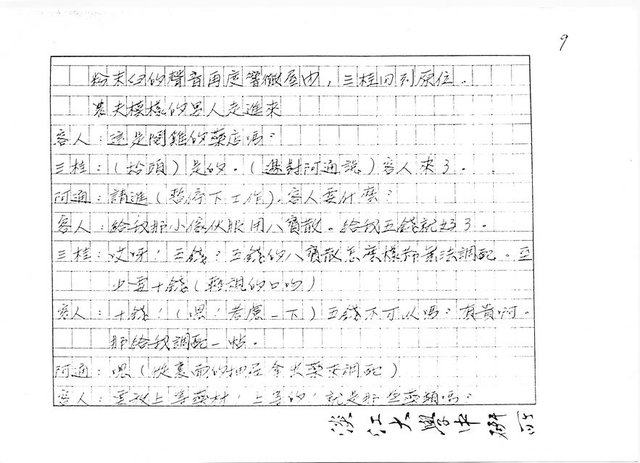 9
粉末似的聲音再度響徹屋內，三桂回到原位．
農夫模樣的男人走進來
客人：這是開錐的藥店嗎？
三桂：（抬頭）是的．（遂對阿通說）客人來了．
阿通：請進（暫停下工作）．客人要什麼？
客人：給我那小傢伙服用八寶散．給我五錢就好了．
三桂：哎呀！五錢？五錢的八寶散怎麼樣都無法調配．至
少要十錢（輕視的口吻）
客人：十錢！（嗯！考慮一下）五錢不可以嗎？有貴啊．
那給我調配一帖．
阿通：嗯（從裏面的抽屜拿出藥來調配）
客人：要放上等藥材！上等的！就是那些藥頭嗎？
淡江大學中研所